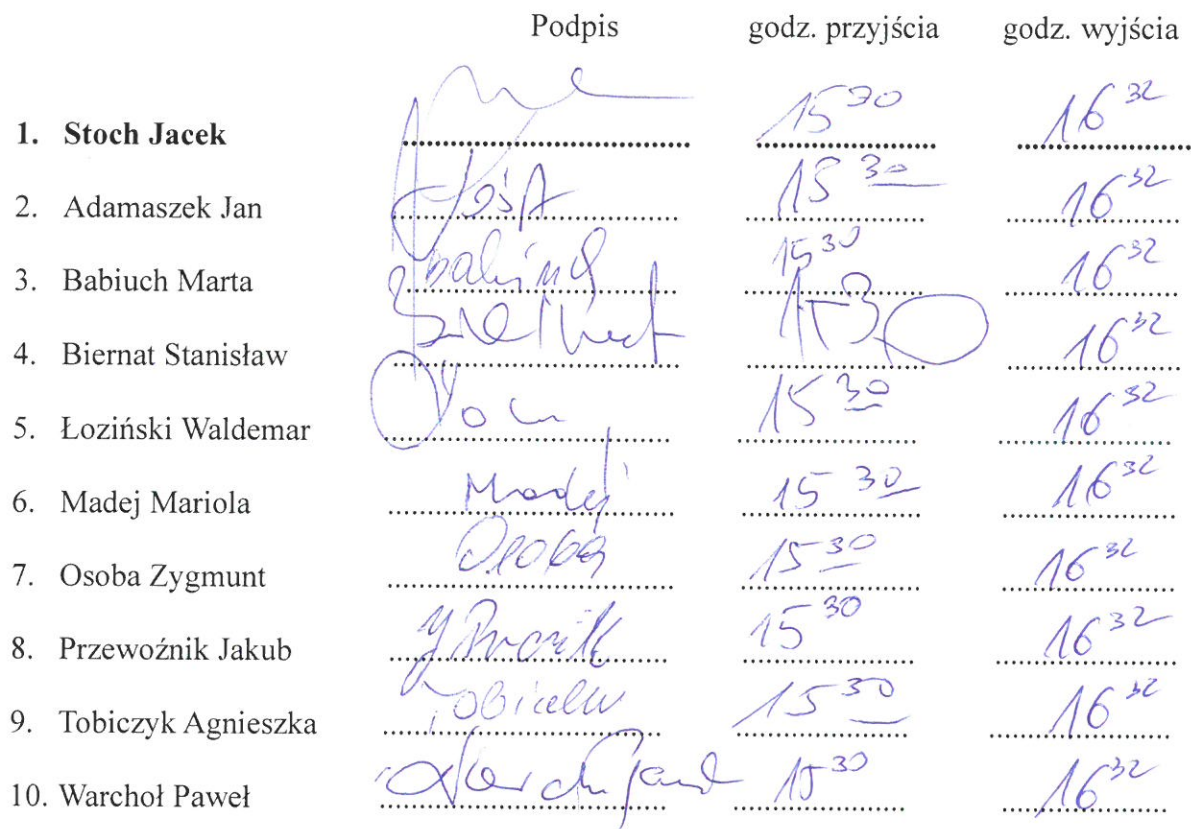 Podpis godz. przyjścia godz. wyjścia
1. Stoch Jacek 15 30 16 32
2. Adamaszek Jan 15 30 16 32
3. Babiuch Marta 15 30 16 32
4. Biernat Stanisław 1530 16 32
5. Łoziński Waldemar 15 30 16 32
6. Madej Mariola Madej 15 30 16 32
7. Osoba Zygmunt Osoba 15 30 16 32
8. Przewoźnik Jakub 15 30 16 32
9. Tobiczyk Agnieszka 15 30 16 32
10. Warchoł Paweł 15 30 16 32